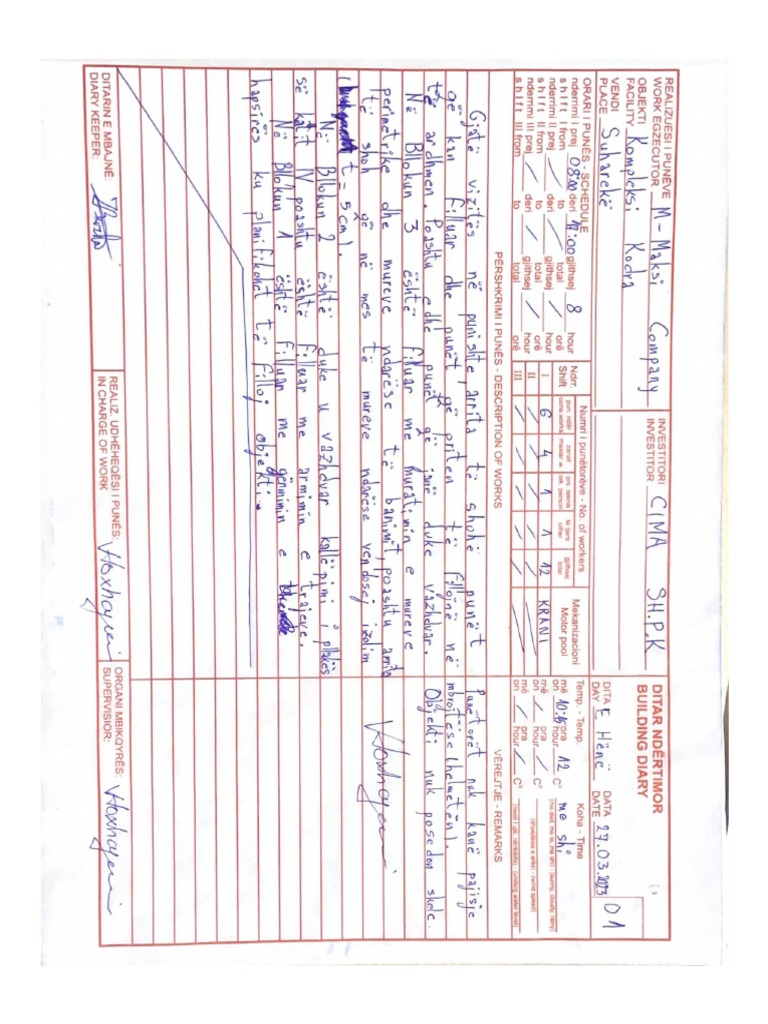 REALIZUESI I PUNËVE
WORK EGZECUTOR M-Maksi Company
INVESTITORI
INVESTITOR CIMA SH.P.K
DITAR NDËRTIMOR
BUILDING DIARY
OBJEKTI
FACILITY Kompleksi Kodra
VENDI
PLACE Suharekë
DITA
DAY E Hënë
DATA
DATE 27.03.2023
01
ORARI I PUNËS - SCHEDULE
ndërrimi I prej 08:00 deri 17:00 gjithsej 8 hour
shift I from to total orë
ndërrimi II prej / deri / gjithsej / hour
shift II from to total orë
ndërrimi III prej / deri / gjithsej / hour
shift III from to total orë
Ndrr.
Shift
Numri i punëtorëve - No. of workers
I 6 4 1 1 12
II / / / / /
III / / / / /
Mekanizacioni
Motor pool
KRANI
Temp. - Temp.
më 10:15 ora 12 C°
on hour
më / ora / C°
on hour
më / ora / C°
on hour
Koha - Time
me shi
PËRSHKRIMI I PUNËS - DESCRIPTION OF WORKS
Gjatë vizitës në punishte, arrita të shohë punët
që kan filluar dhe punët që priten të fillojnë në
të ardhmen. Poashtu edhe punët që janë duke vazhdvar.
Në Bllokun 3 është filluar me muratimin e mureve
perimetrike dhe mureve ndarëse të banimit, poashtu arrita
të shoh që në mes të mureve ndarëse vendosej izolim
t = 5 cm).
Në Bllokun 2 është duke u vazhdvar kallëpimi i pllakës
së katit IV poashtu është filluar me armimin e trajeve.
Në Bllokun 1 është filluar me gërmimin e
hapsirës ku planifikohet të filloj objekti.
VËREJTJE - REMARKS
Punëtorët nuk kanë pajisje
mbrojtëse (helmetën).
Objekti nuk posedon skele.
Hoxhaj
DITARIN E MBAJNË:
DIARY KEEPER:
REALIZ. UDHËHEQËSI I PUNËS:
IN CHARGE OF WORK
ORGANI MBIKQYRËS:
SUPERVISIOR: